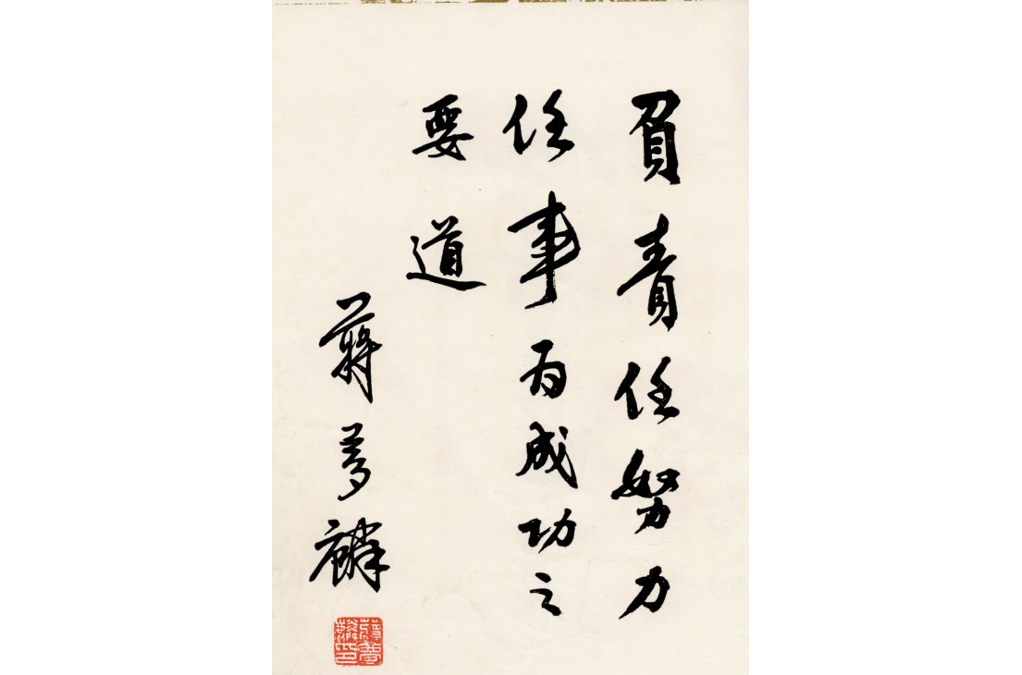 負責任努力
任事為成功之
要道
蔣夢麟
蔣夢麟印